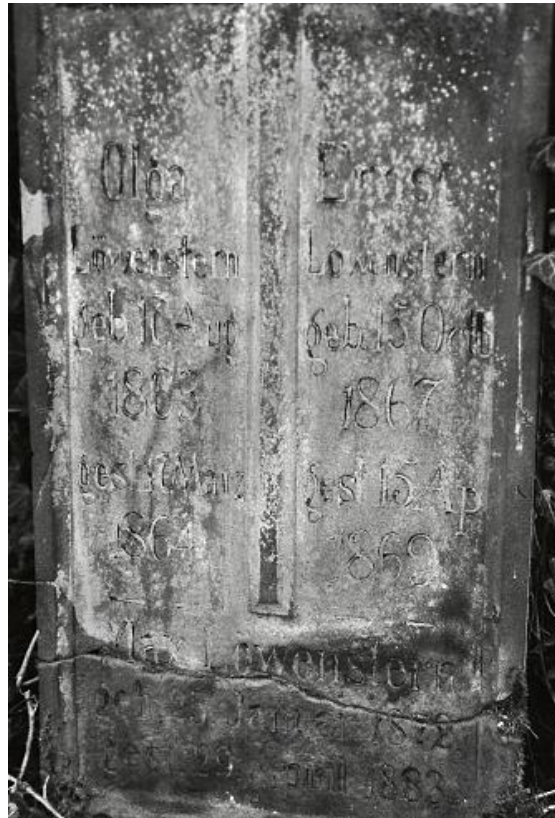 Olga
Löwenstern
geb. 16 Aug
1863
gest. 17 März
1864
Ernst
Löwenstern
geb. 15 Octb
1867
gest 15 Ap
1869
Max Löwenstern
geb. Januar 1872
gest. 29. April 1883